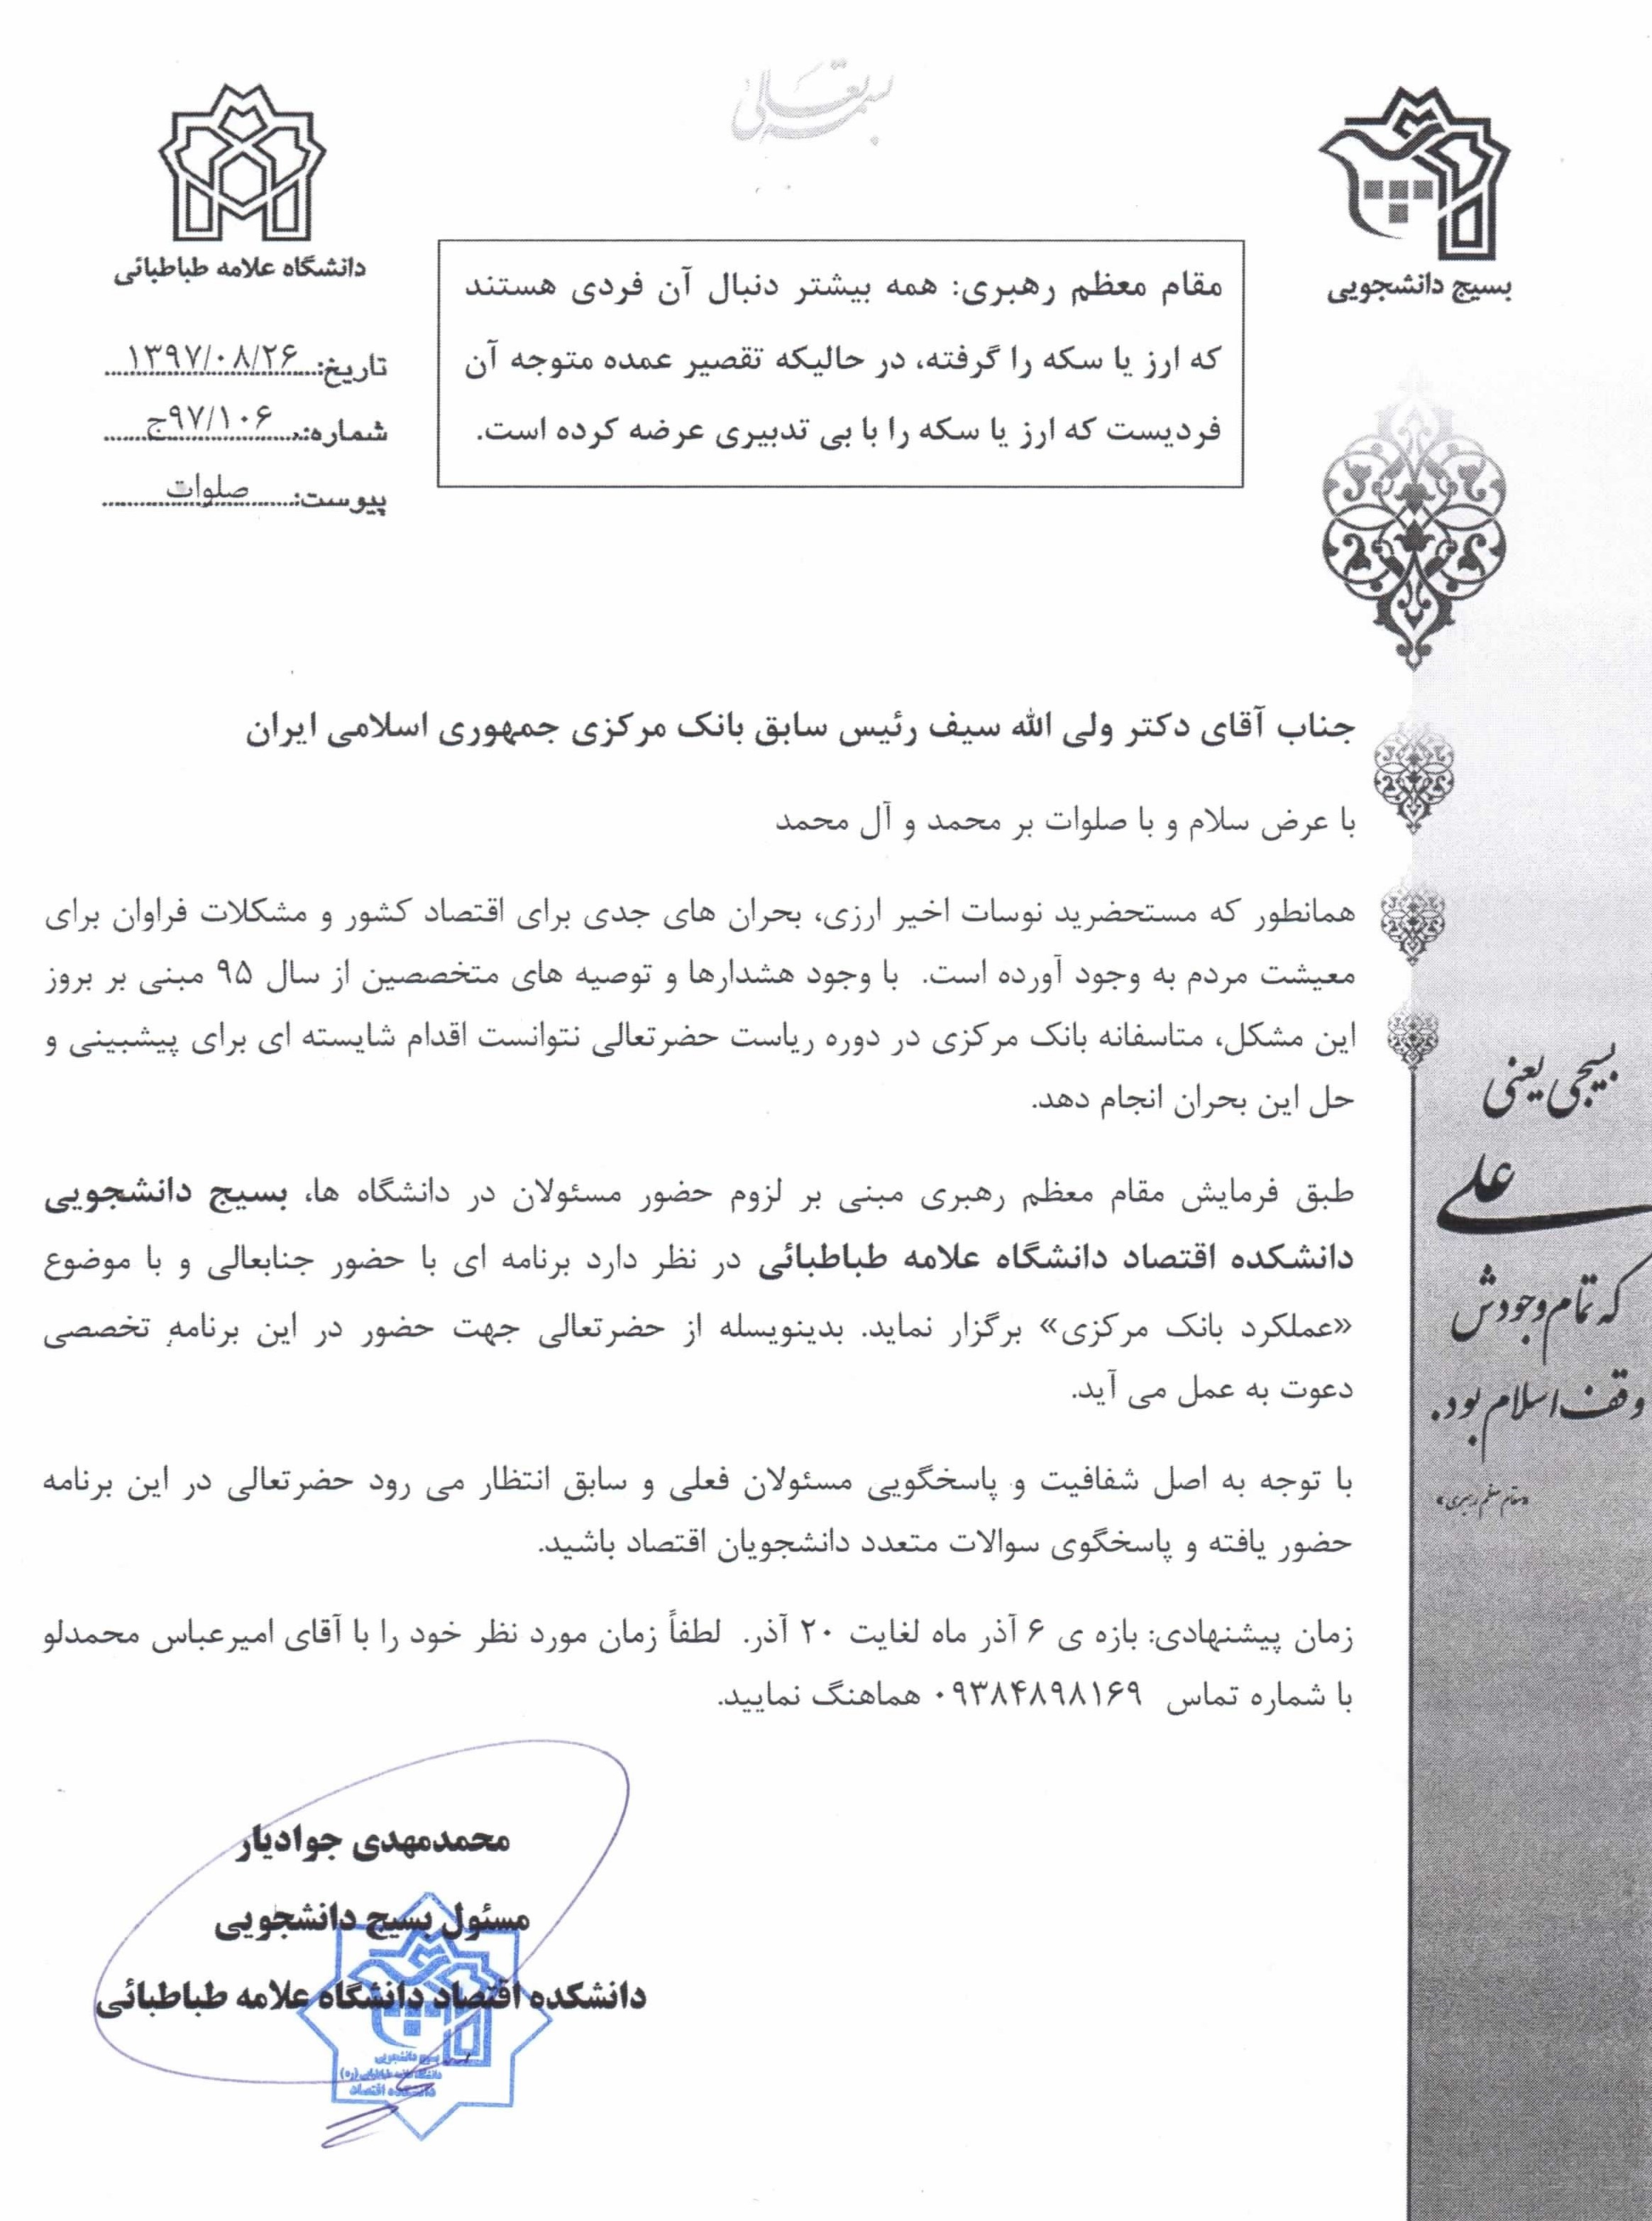 بسمه تعالی
بسیج دانشجویی
دانشگاه علامه طباطبائی
تاریخ: ۱۳۹۷/۰۸/۲۶
شماره: ۹۷/۱۰۶ج
پیوست: صلوات
مقام معظم رهبری: همه بیشتر دنبال آن فردی هستند
که ارز یا سکه را گرفته، در حالیکه تقصیر عمده متوجه آن
فردیست که ارز یا سکه را با بی تدبیری عرضه کرده است.
جناب آقای دکتر ولی الله سیف رئیس سابق بانک مرکزی جمهوری اسلامی ایران
با عرض سلام و با صلوات بر محمد و آل محمد
همانطور که مستحضرید نوسات اخیر ارزی، بحران های جدی برای اقتصاد کشور و مشکلات فراوان برای
معیشت مردم به وجود آورده است. با وجود هشدارها و توصیه های متخصصین از سال ۹۵ مبنی بر بروز
این مشکل، متاسفانه بانک مرکزی در دوره ریاست حضرتعالی نتوانست اقدام شایسته ای برای پیشبینی و
حل این بحران انجام دهد.
طبق فرمایش مقام معظم رهبری مبنی بر لزوم حضور مسئولان در دانشگاه ها، بسیج دانشجویی
دانشکده اقتصاد دانشگاه علامه طباطبائی در نظر دارد برنامه ای با حضور جنابعالی و با موضوع
«عملکرد بانک مرکزی» برگزار نماید. بدینویسله از حضرتعالی جهت حضور در این برنامه تخصصی
دعوت به عمل می آید.
با توجه به اصل شفافیت و پاسخگویی مسئولان فعلی و سابق انتظار می رود حضرتعالی در این برنامه
حضور یافته و پاسخگوی سوالات متعدد دانشجویان اقتصاد باشید.
زمان پیشنهادی: بازه ی ۶ آذر ماه لغایت ۲۰ آذر. لطفاً زمان مورد نظر خود را با آقای امیرعباس محمدلو
با شماره تماس ۰۹۳۸۴۸۹۸۱۶۹ هماهنگ نمایید.
محمدمهدی جوادیار
مسئول بسیج دانشجویی
دانشکده اقتصاد دانشگاه علامه طباطبائی
بسیج دانشجویی
دانشگاه علامه طباطبایی (ره)
دانشکده اقتصاد
بسیجی یعنی
علی
که تمام وجودش
وقف اسلام بود.
«مقام معظم رهبری»